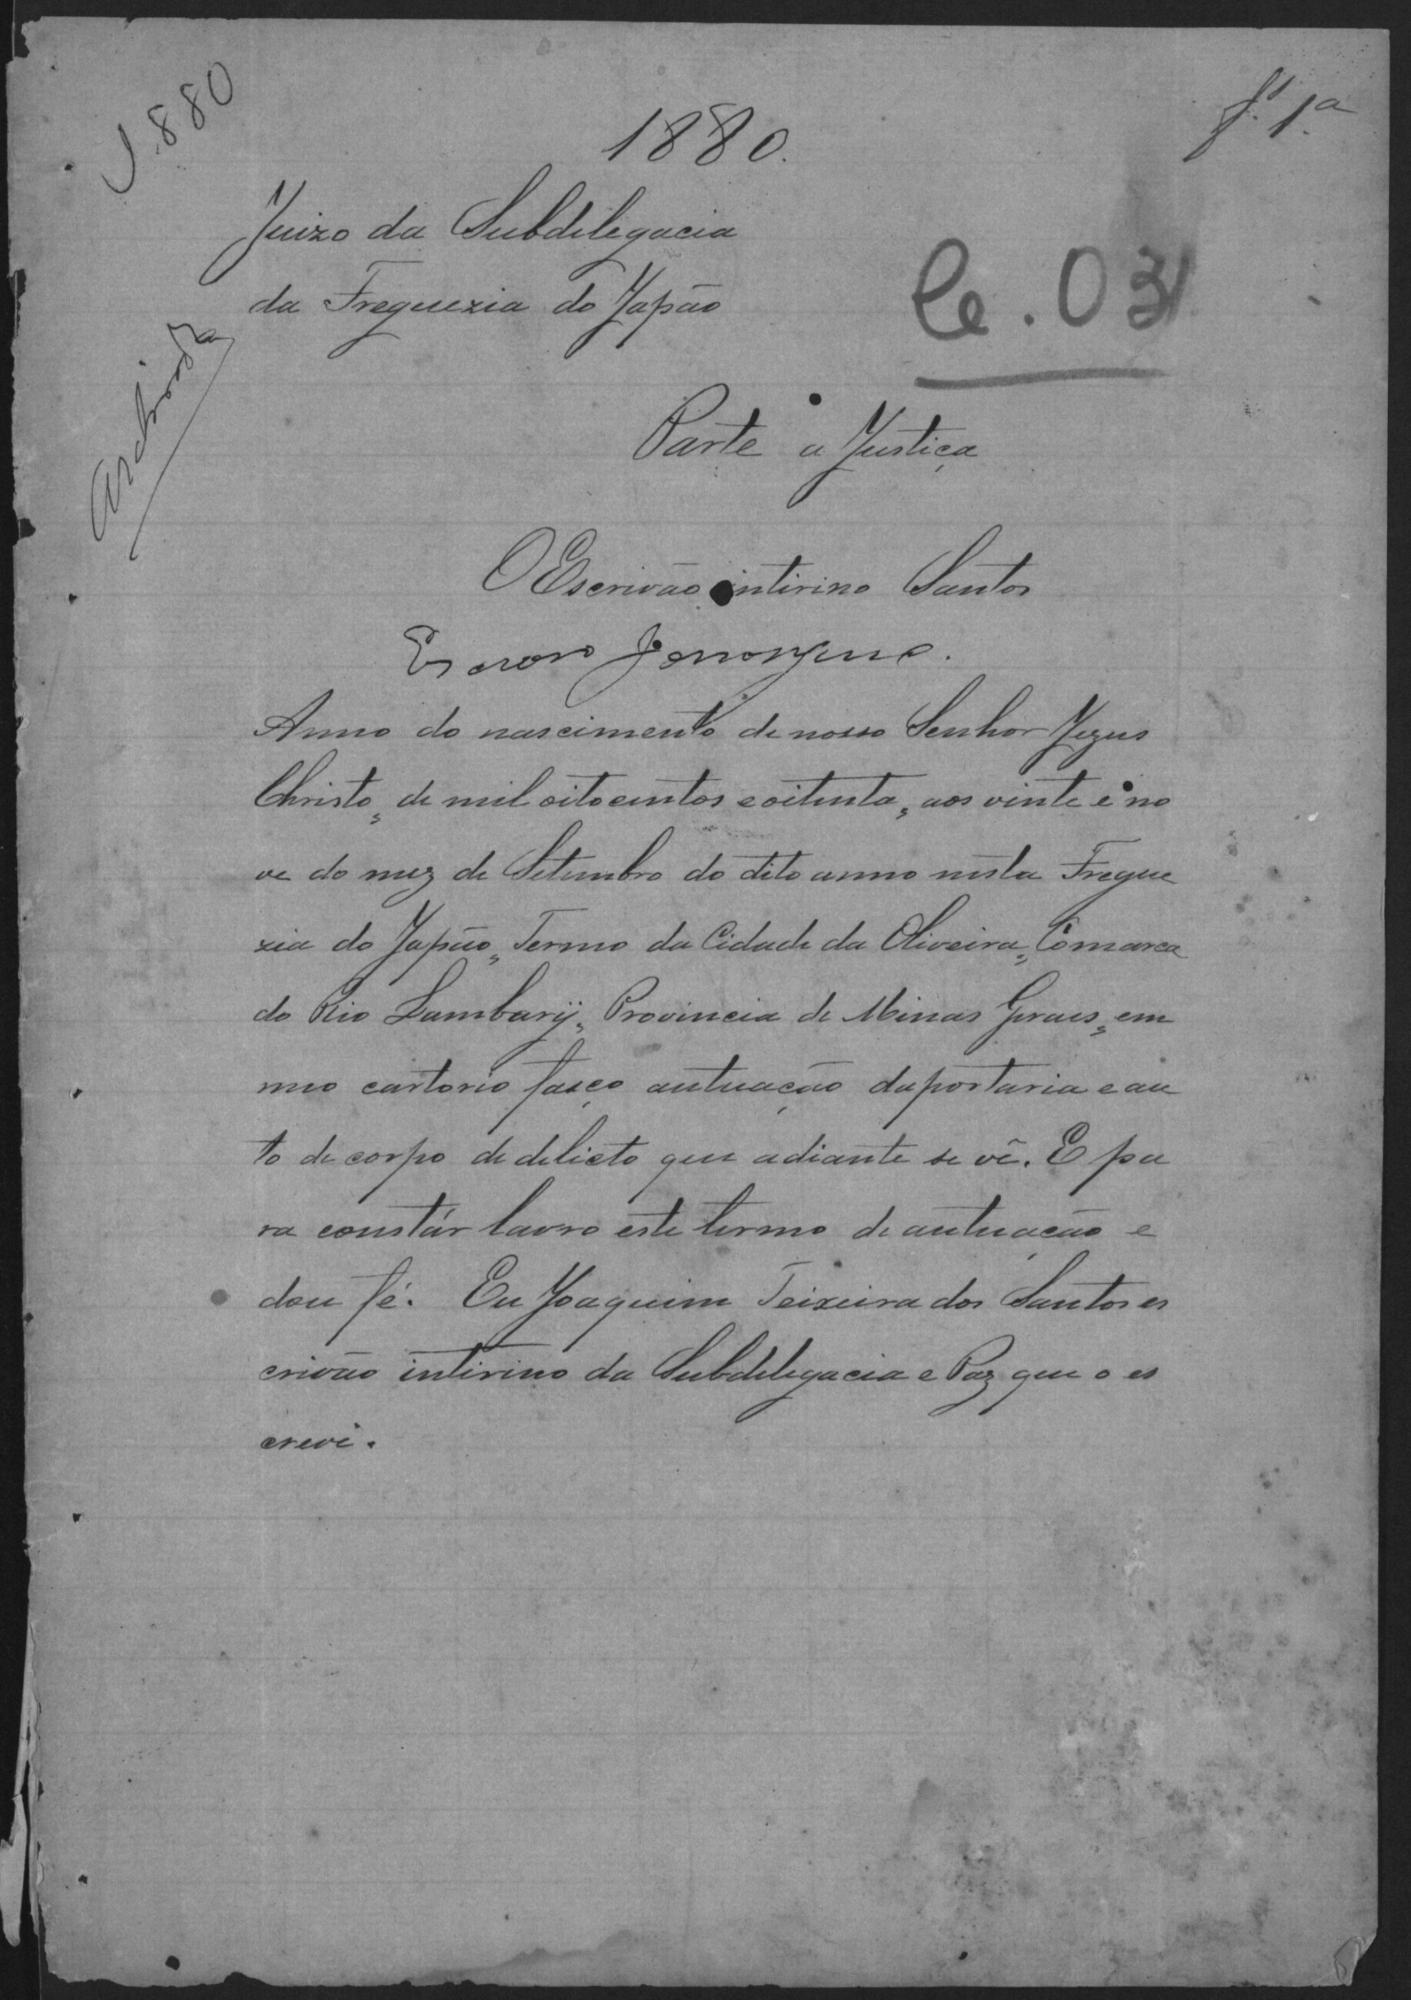 1880
1880.
fs 1.a
Juizo da Subdelegacia
da Freguezia do Japão
Archivado
Parte a Justiça
O Escrivão intirino Santos
Escravo Jeronymo.
Anno do nascimento de nosso Senhor Jezus
Christo, de mil oitocentos e oitenta, aos vinte e no
ve do mez de Setembro do dito anno nesta Fregue
zia do Japão, Termo da Cidade da Oliveira, Comarca
do Rio Lambary, Provincia de Minas Geraes, em
meo cartorio fasço autuação da portaria e au
to de corpo de delicto que adiante se vê. E pa
ra constár lavro este termo de autuação e
dou fé. Eu Joaquim Teixeira dos Santos es
crivão intirino da Subdelegacia e Paz que o es
crevi.